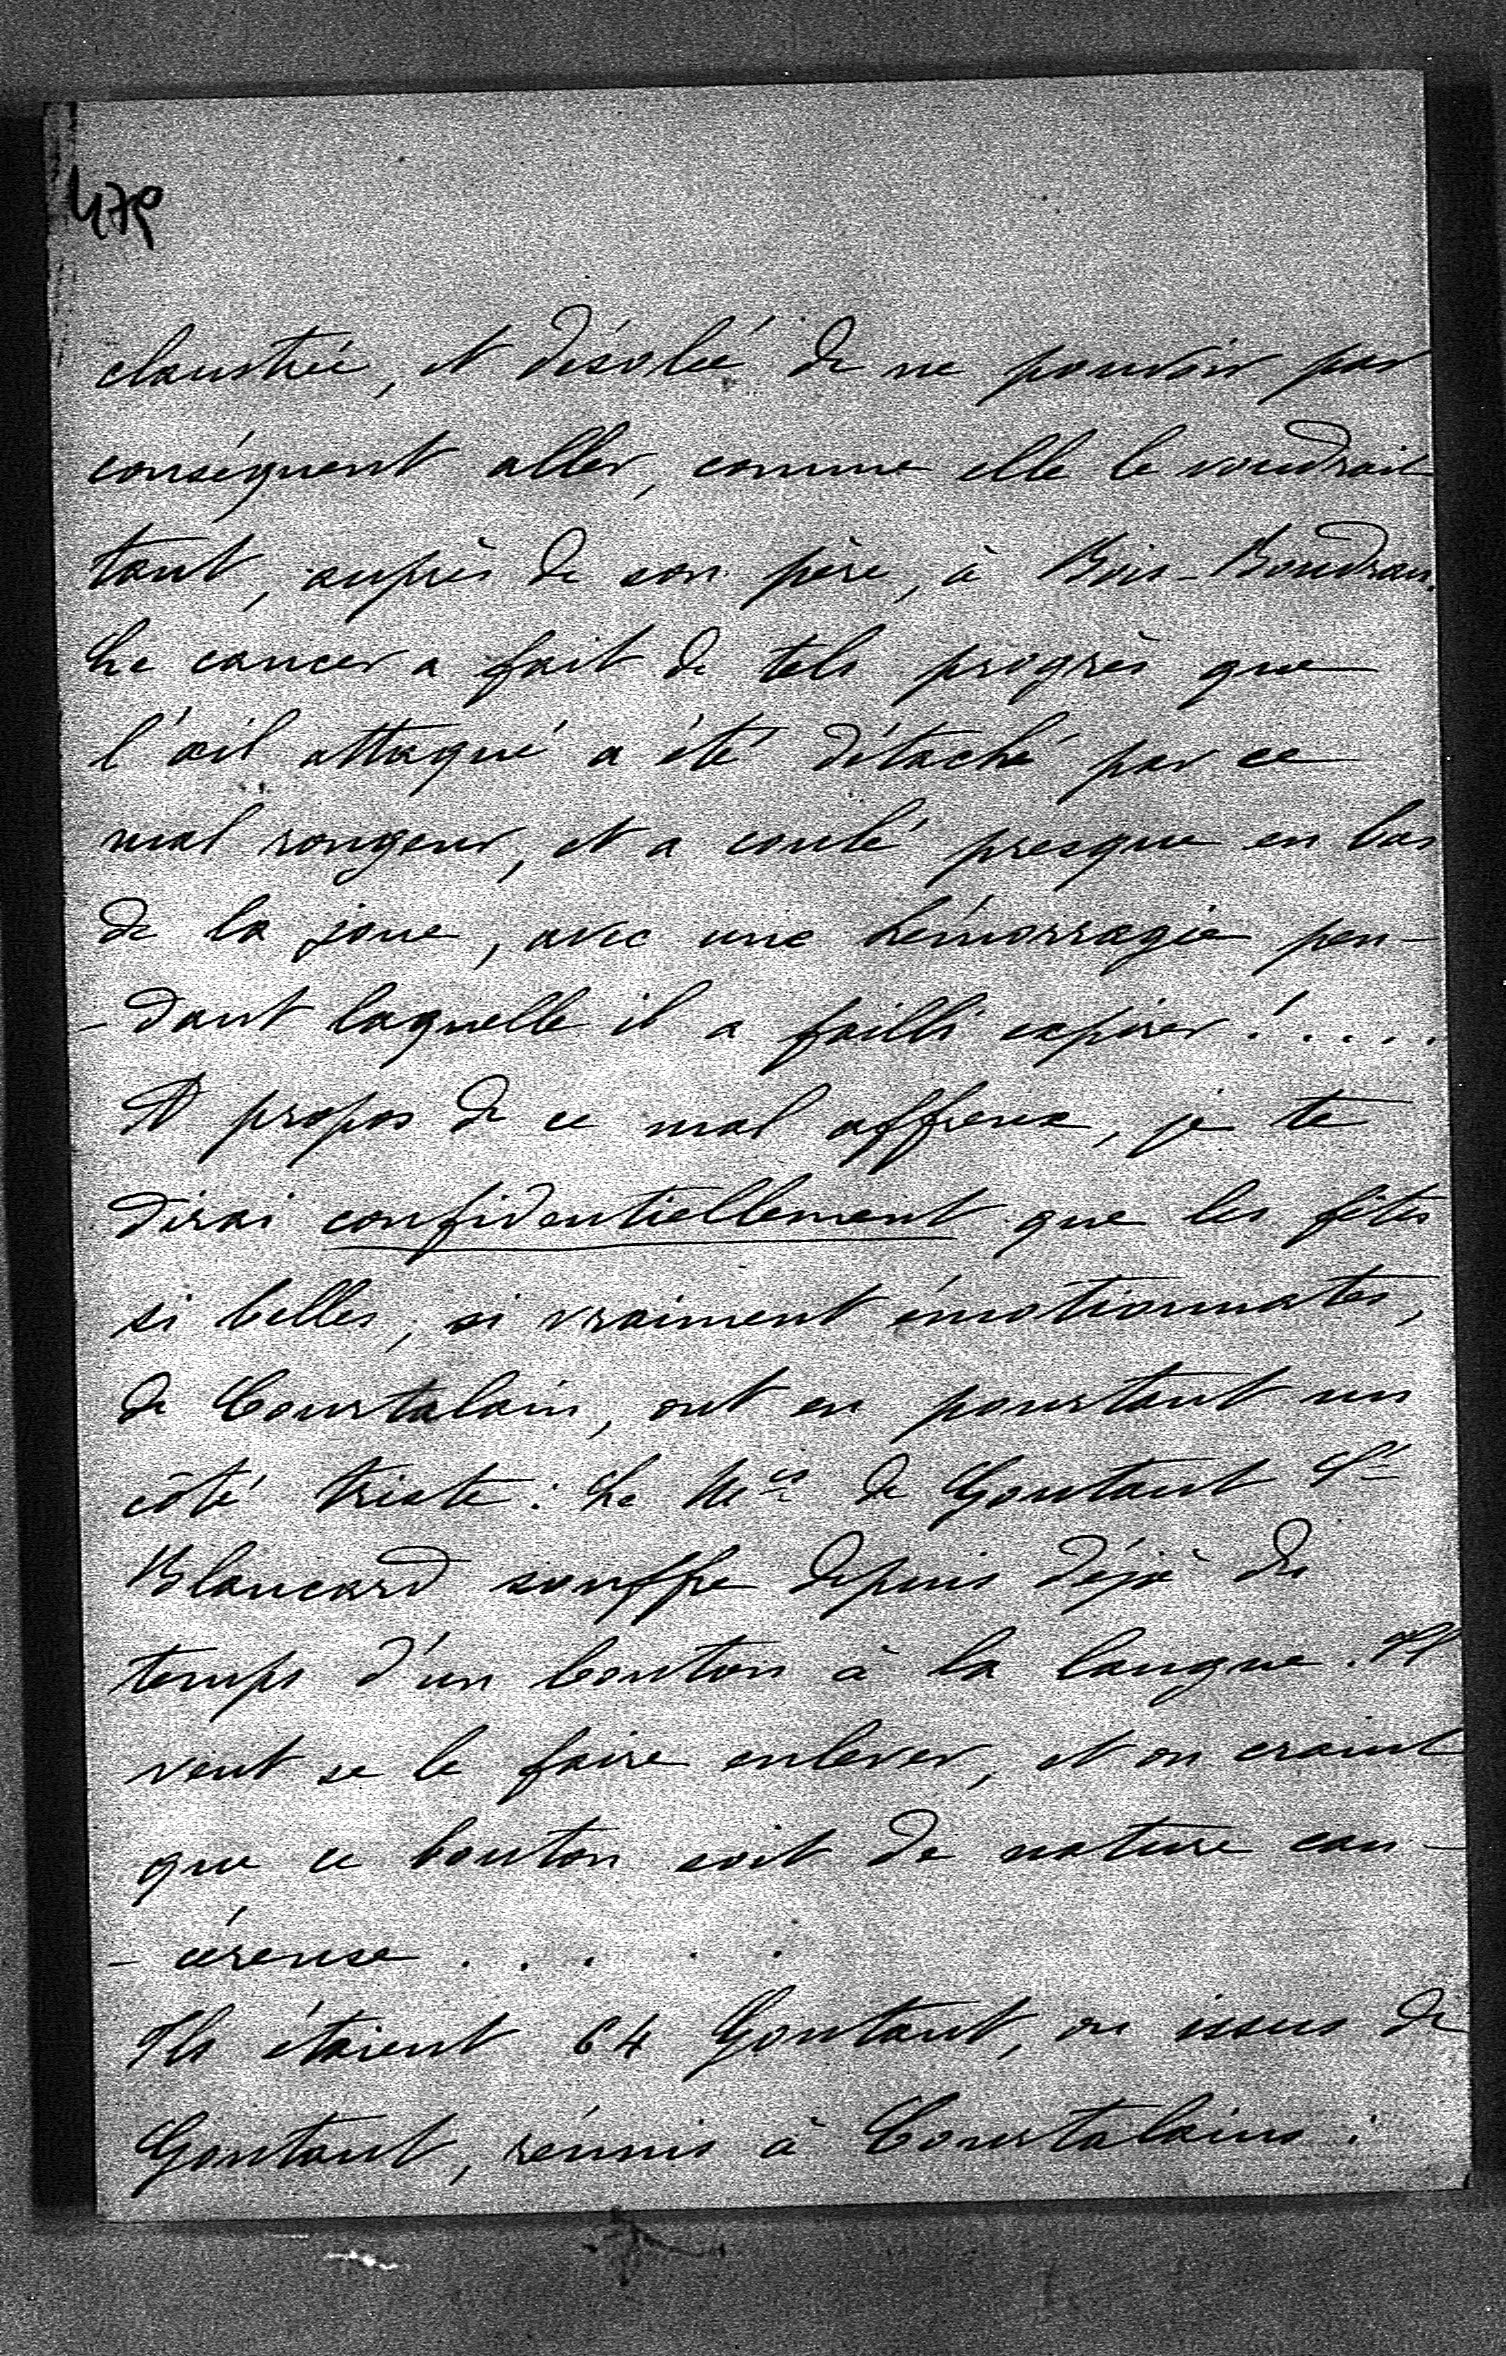 479
claustrée, et désolée de ne pouvoir par
conséquent aller, comme elle le voudrait
tant, auprès de son père, à Bois-Boudran.
Le cancer a fait de tels progrès que
l'œil attaqué a été détaché par ce
mal rongeur, et a coulé presque en bas
de la joue, avec une hémorragie pen-
-dant laquelle il a failli expirer !....
A propos de ce mal affreux, je te
dirai confidentiellement que les fêtes
si belles, si vraiment émotionnantes,
de Courtalain, ont eu pourtant un
côté triste : Le Mis de Gontaut St
Blancard souffre depuis déjà du
temps d'un bouton à la langue. Il
veut se le faire enlever, et on craint
que ce bouton soit de nature can-
-céreuse . . . . .
Ils étaient 64 Gontaut, ou issus de
Gontaut, réunis à Courtalains :